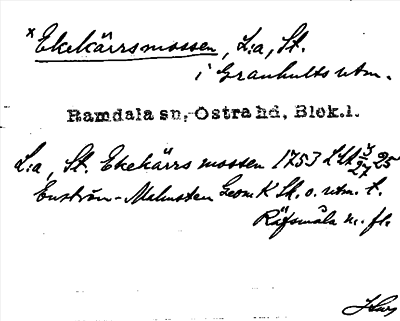 x Ekekärrsmossen, L:a, St.
i Granhults utm.
Ramdala sn, Östra hd, Blek.l.
L:a, St. Ekekärrs mossen 1753 LSA 3/27 25
Enström-Malmsten Geom K Sk. o. utm. t.
Räfsmåla m. fl.